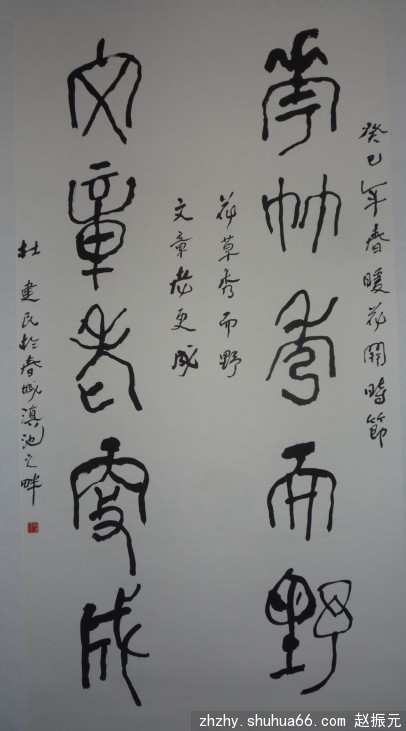 癸巳年春暖花開時節
華艸秀而野
花草秀而野
文章老更成
文章老更成
杜建民於春城滇池之畔
zhzhy.shuhua66.com 赵振元